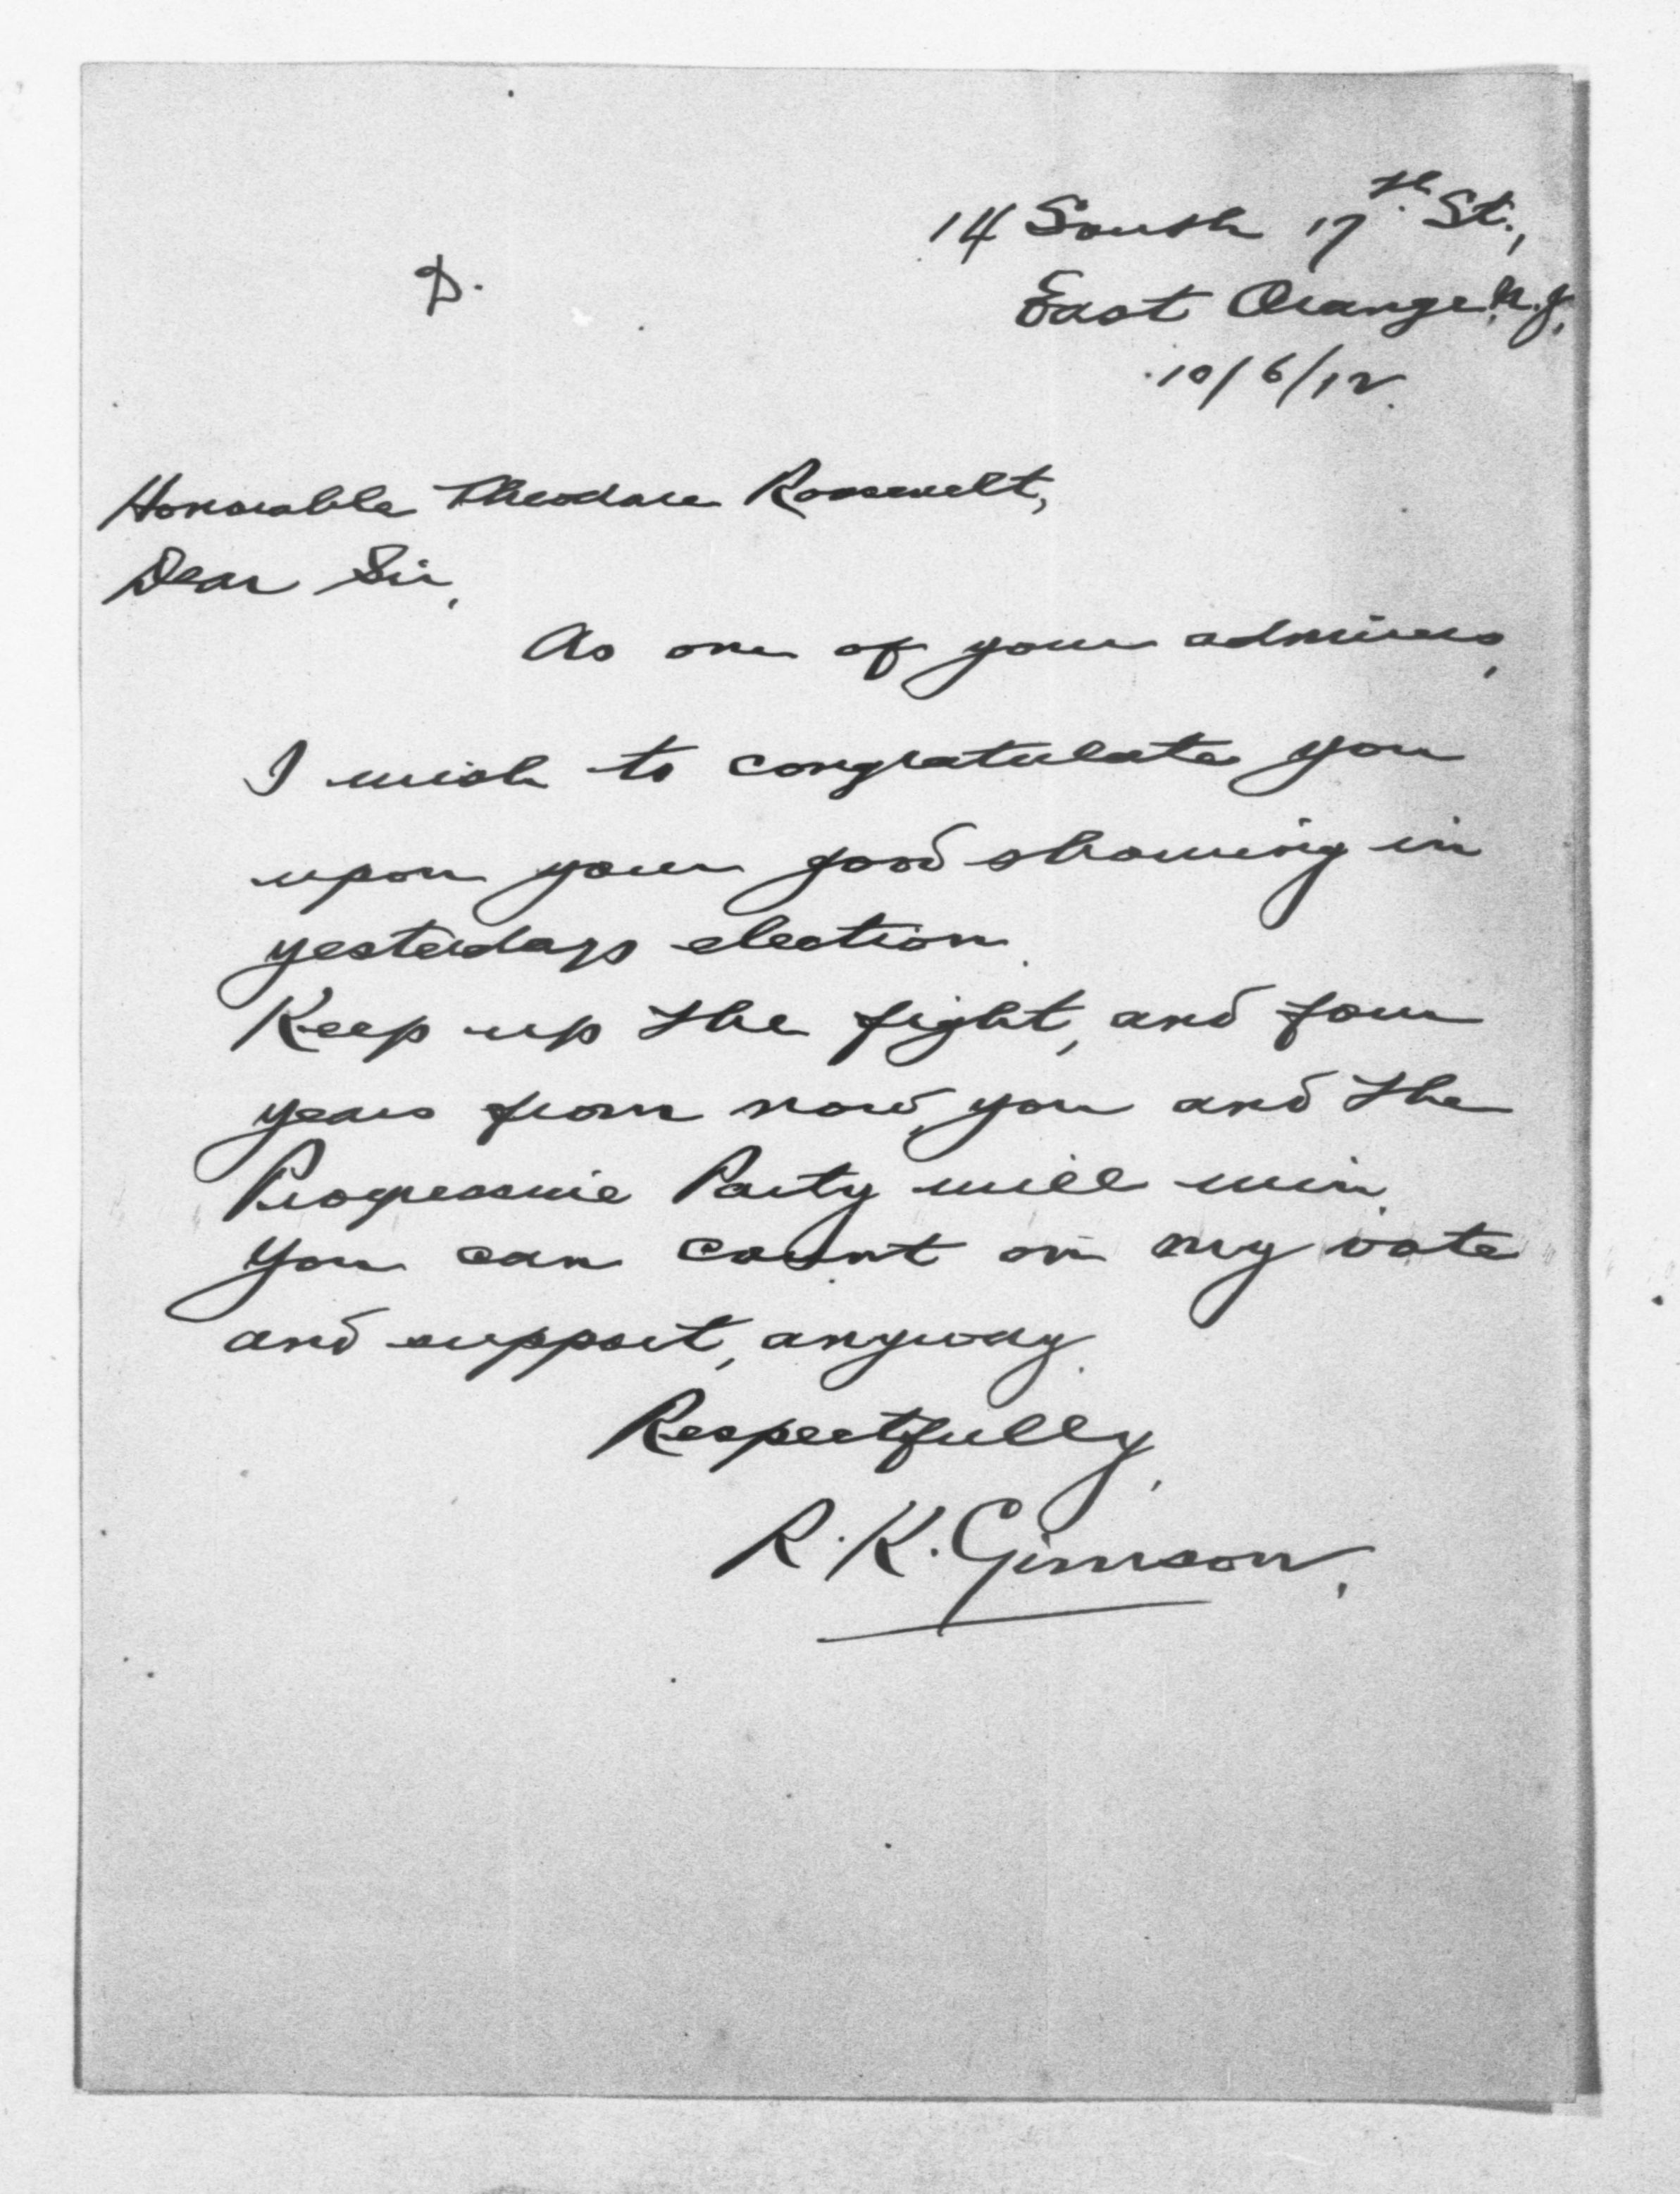 14 South 17th St.,
East Orange, N.J.
D.
10/6/12.
Honorable Theodore Roosevelt,
Dear Sir,
As one of your admirers,
I wish to congratulate you
upon your good showing in
yesterdays election.
Keep up the fight, and four
years from now, you and the
Progressive Party will win.
You can count on my vote
and support, anyway.
Respectfully,
R. K. Gimson.